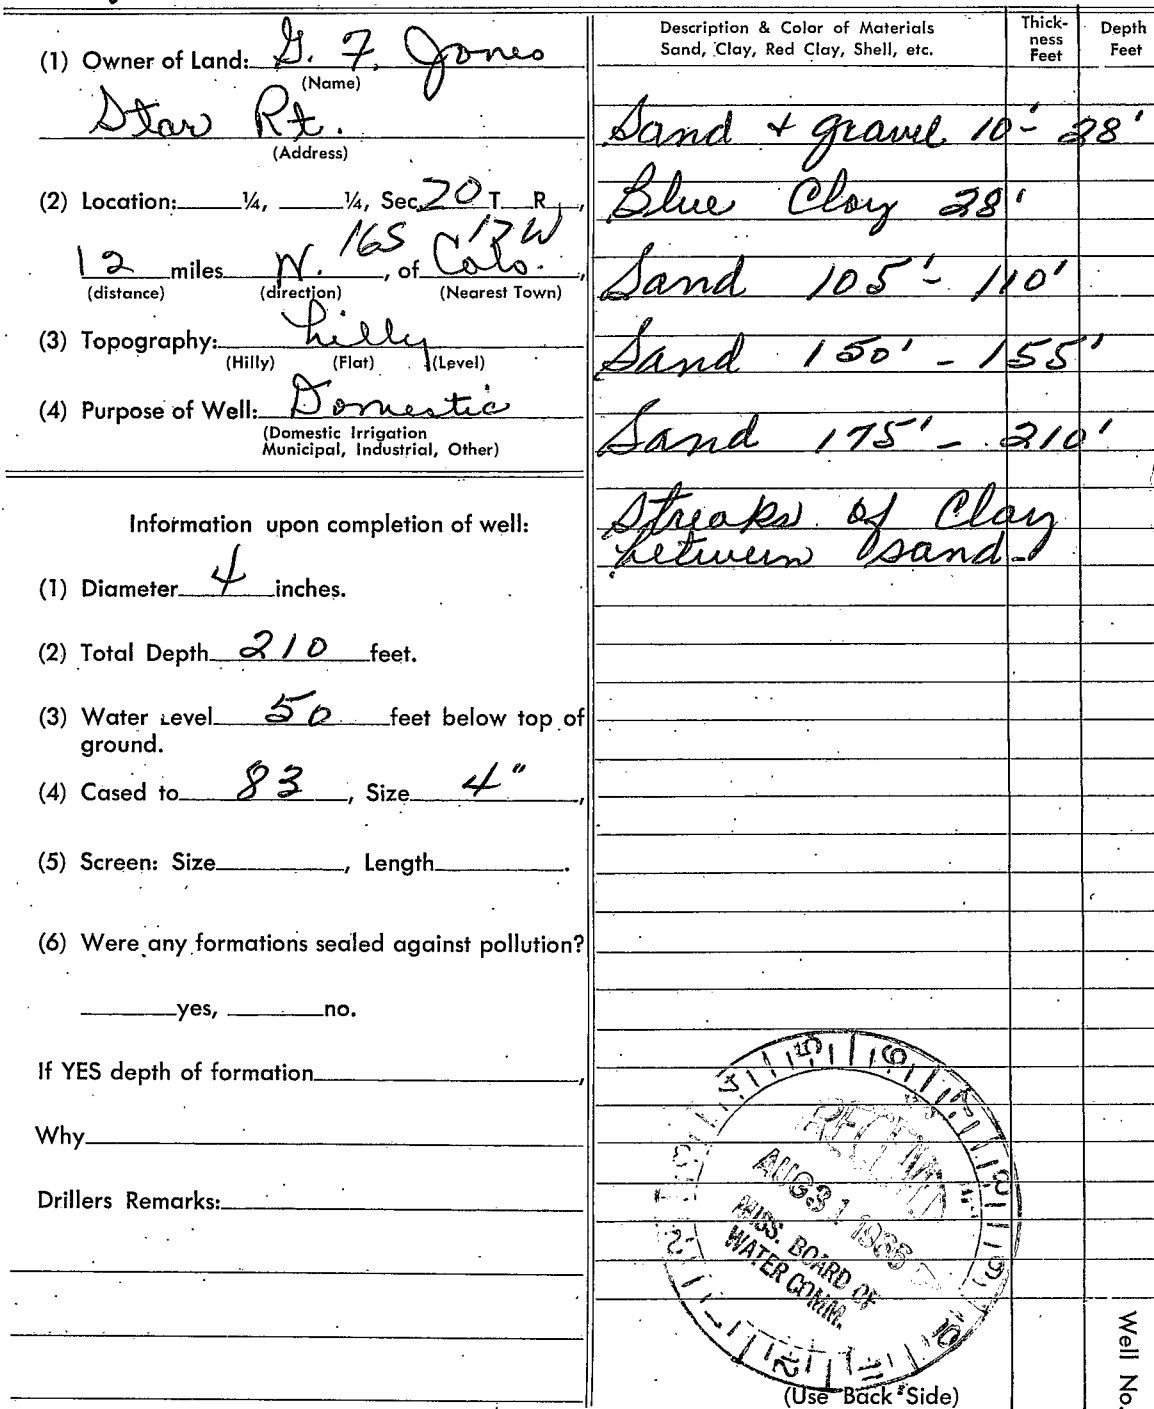 (1) Owner of Land: G. F. Jones
(Name)
Star Rt.
(Address)
(2) Location: ¼, ¼, Sec. 20 T. R.,
16S 17W
12 miles N., of Colo.,
(distance) (direction) (Nearest Town)
(3) Topography: hilly
(Hilly) (Flat) (Level)
(4) Purpose of Well: Domestic
(Domestic Irrigation
Municipal, Industrial, Other)
Information upon completion of well:
(1) Diameter 4 inches.
(2) Total Depth 210 feet.
(3) Water Level 50 feet below top of
ground.
(4) Cased to 83, Size 4",
(5) Screen: Size, Length.
(6) Were any formations sealed against pollution?
yes, no.
If YES depth of formation,
Why
Drillers Remarks:
Description & Color of Materials
Sand, Clay, Red Clay, Shell, etc.
Thick-
ness
Feet
Depth
Feet
Sand & gravel 10'- 28'
Blue Clay 28'
Sand 105' - 110'
Sand 150' - 155'
Sand 175' - 210'
Streaks of Clay
between sand-
RECEIVED
AUG 31
MISS. BOARD OF
WATER COMM.
(Use Back Side)
Well No.